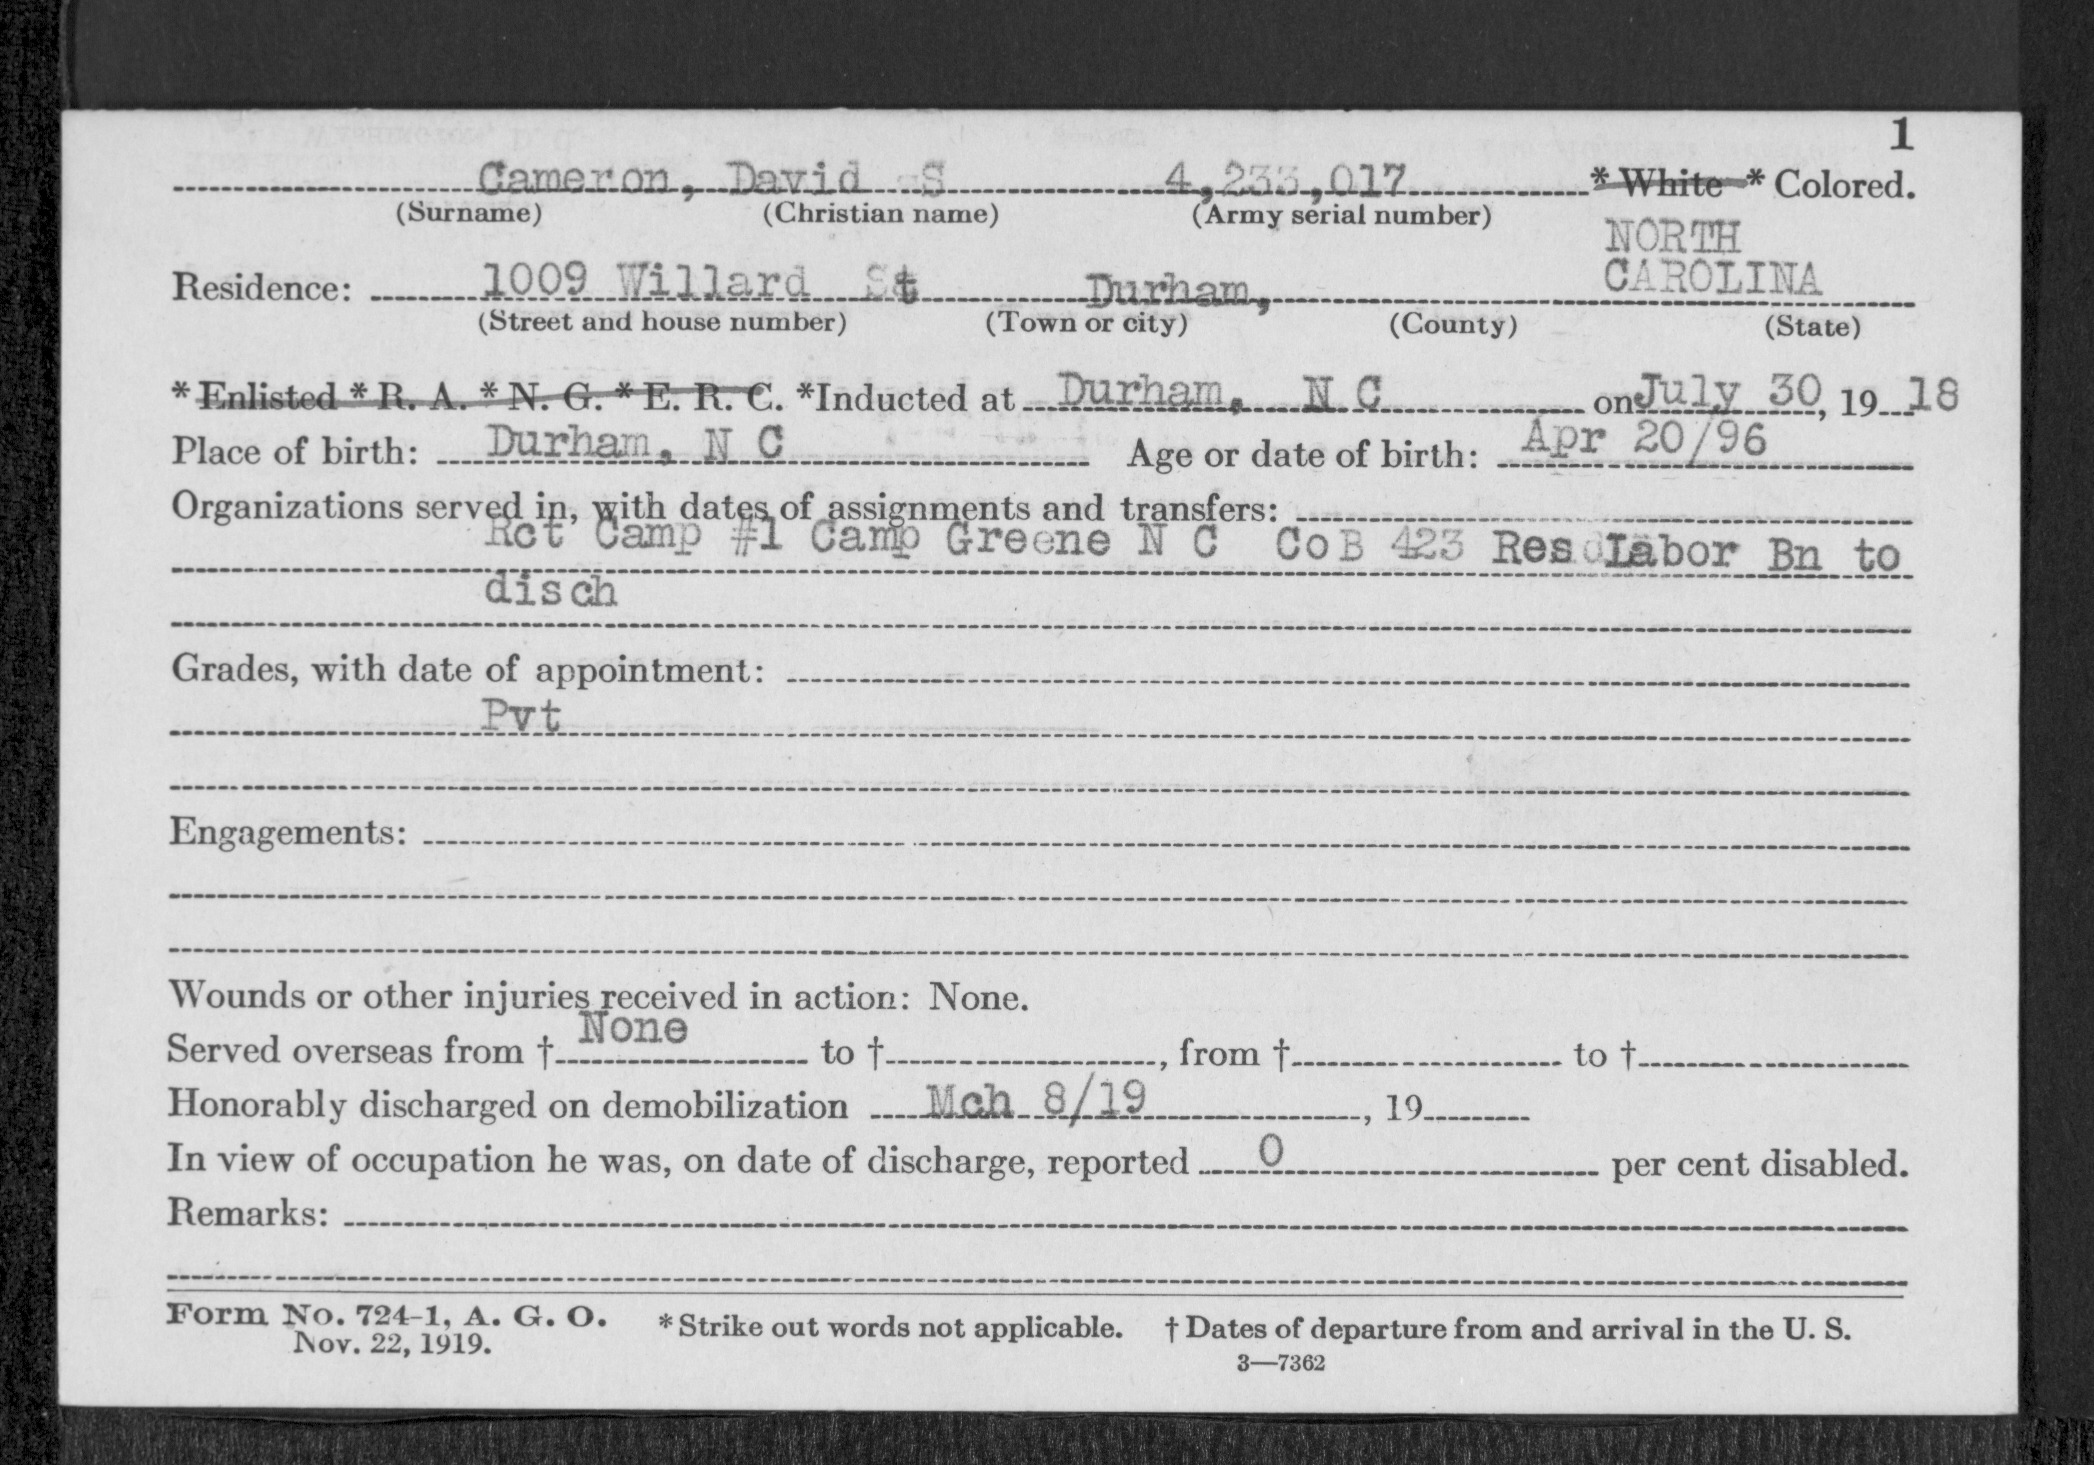 1
Cameron, David S 4,233,017 * White * Colored.
(Surname) (Christian name) (Army serial number)
NORTH
CAROLINA
Residence: 1009 Willard St Durham,
(Street and house number) (Town or city) (County) (State)
* Enlisted * R. A. * N. G. * E. R. C. *Inducted at Durham, N C on July 30, 19 18
Place of birth: Durham, N C Age or date of birth: Apr 20/96
Organizations served in, with dates of assignments and transfers:
Rct Camp #1 Camp Greene N C Co B 423 Res Labor Bn to
disch
Grades, with date of appointment:
Pvt
Engagements:
Wounds or other injuries received in action: None.
Served overseas from † None to †, from † to †
Honorably discharged on demobilization Mch 8/19, 19
In view of occupation he was, on date of discharge, reported 0 per cent disabled.
Remarks:
Form No. 724-1, A. G. O. * Strike out words not applicable. † Dates of departure from and arrival in the U. S.
Nov. 22, 1919.
3—7362